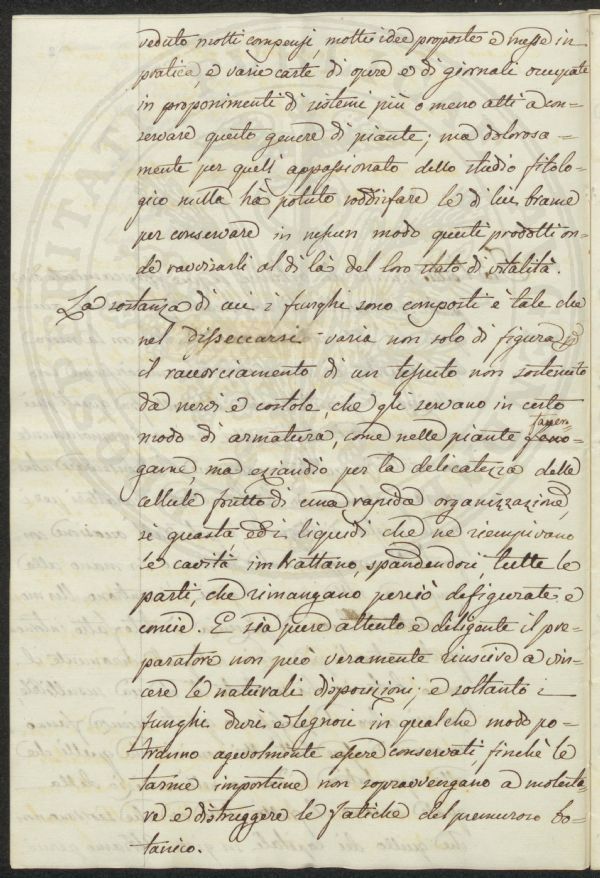 veduto molti compensi, molte idee proposte e messe in
pratica, e varie carte di opere e di giornali occupate
in proponimenti di sistemi più o meno atti a con-
servare questo genere di piante; ma dolorosa-
mente per quell'appassionato dello studio fitolo-
gico nulla ha potuto soddisfare le di lui brame
per conservare in nessun modo questi prodotti on-
de ravvisarli al di là del loro stato di vitalità.
La sostanza di cui i funghi sono composti è tale che
nel disseccarsi varia non solo di figura
il raccorciamento di un tessuto non sostenuto
da nervi e costole, che gli servano in certo
modo di armatura, come nelle piante faneo-
game, ma eziandio per la delicatezza delle
cellule frutto di una rapida organizzazione,
si guasta ed i liquidi che ne riempivano
le cavità imbrattano, spandendosi, tutte le
parti, che rimangano perciò disfigurate e
concie. E sia pure attento e diligente il pre-
paratore non può veramente riuscire a vin-
cere le naturali disposizioni; e soltanto i
funghi duri e legnosi in qualche modo po-
tranno agevolmente essere conservati, finchè le
tarme importune non sopravvengano a molesta-
re e distruggere le fatiche del premuroso bo-
tanico.